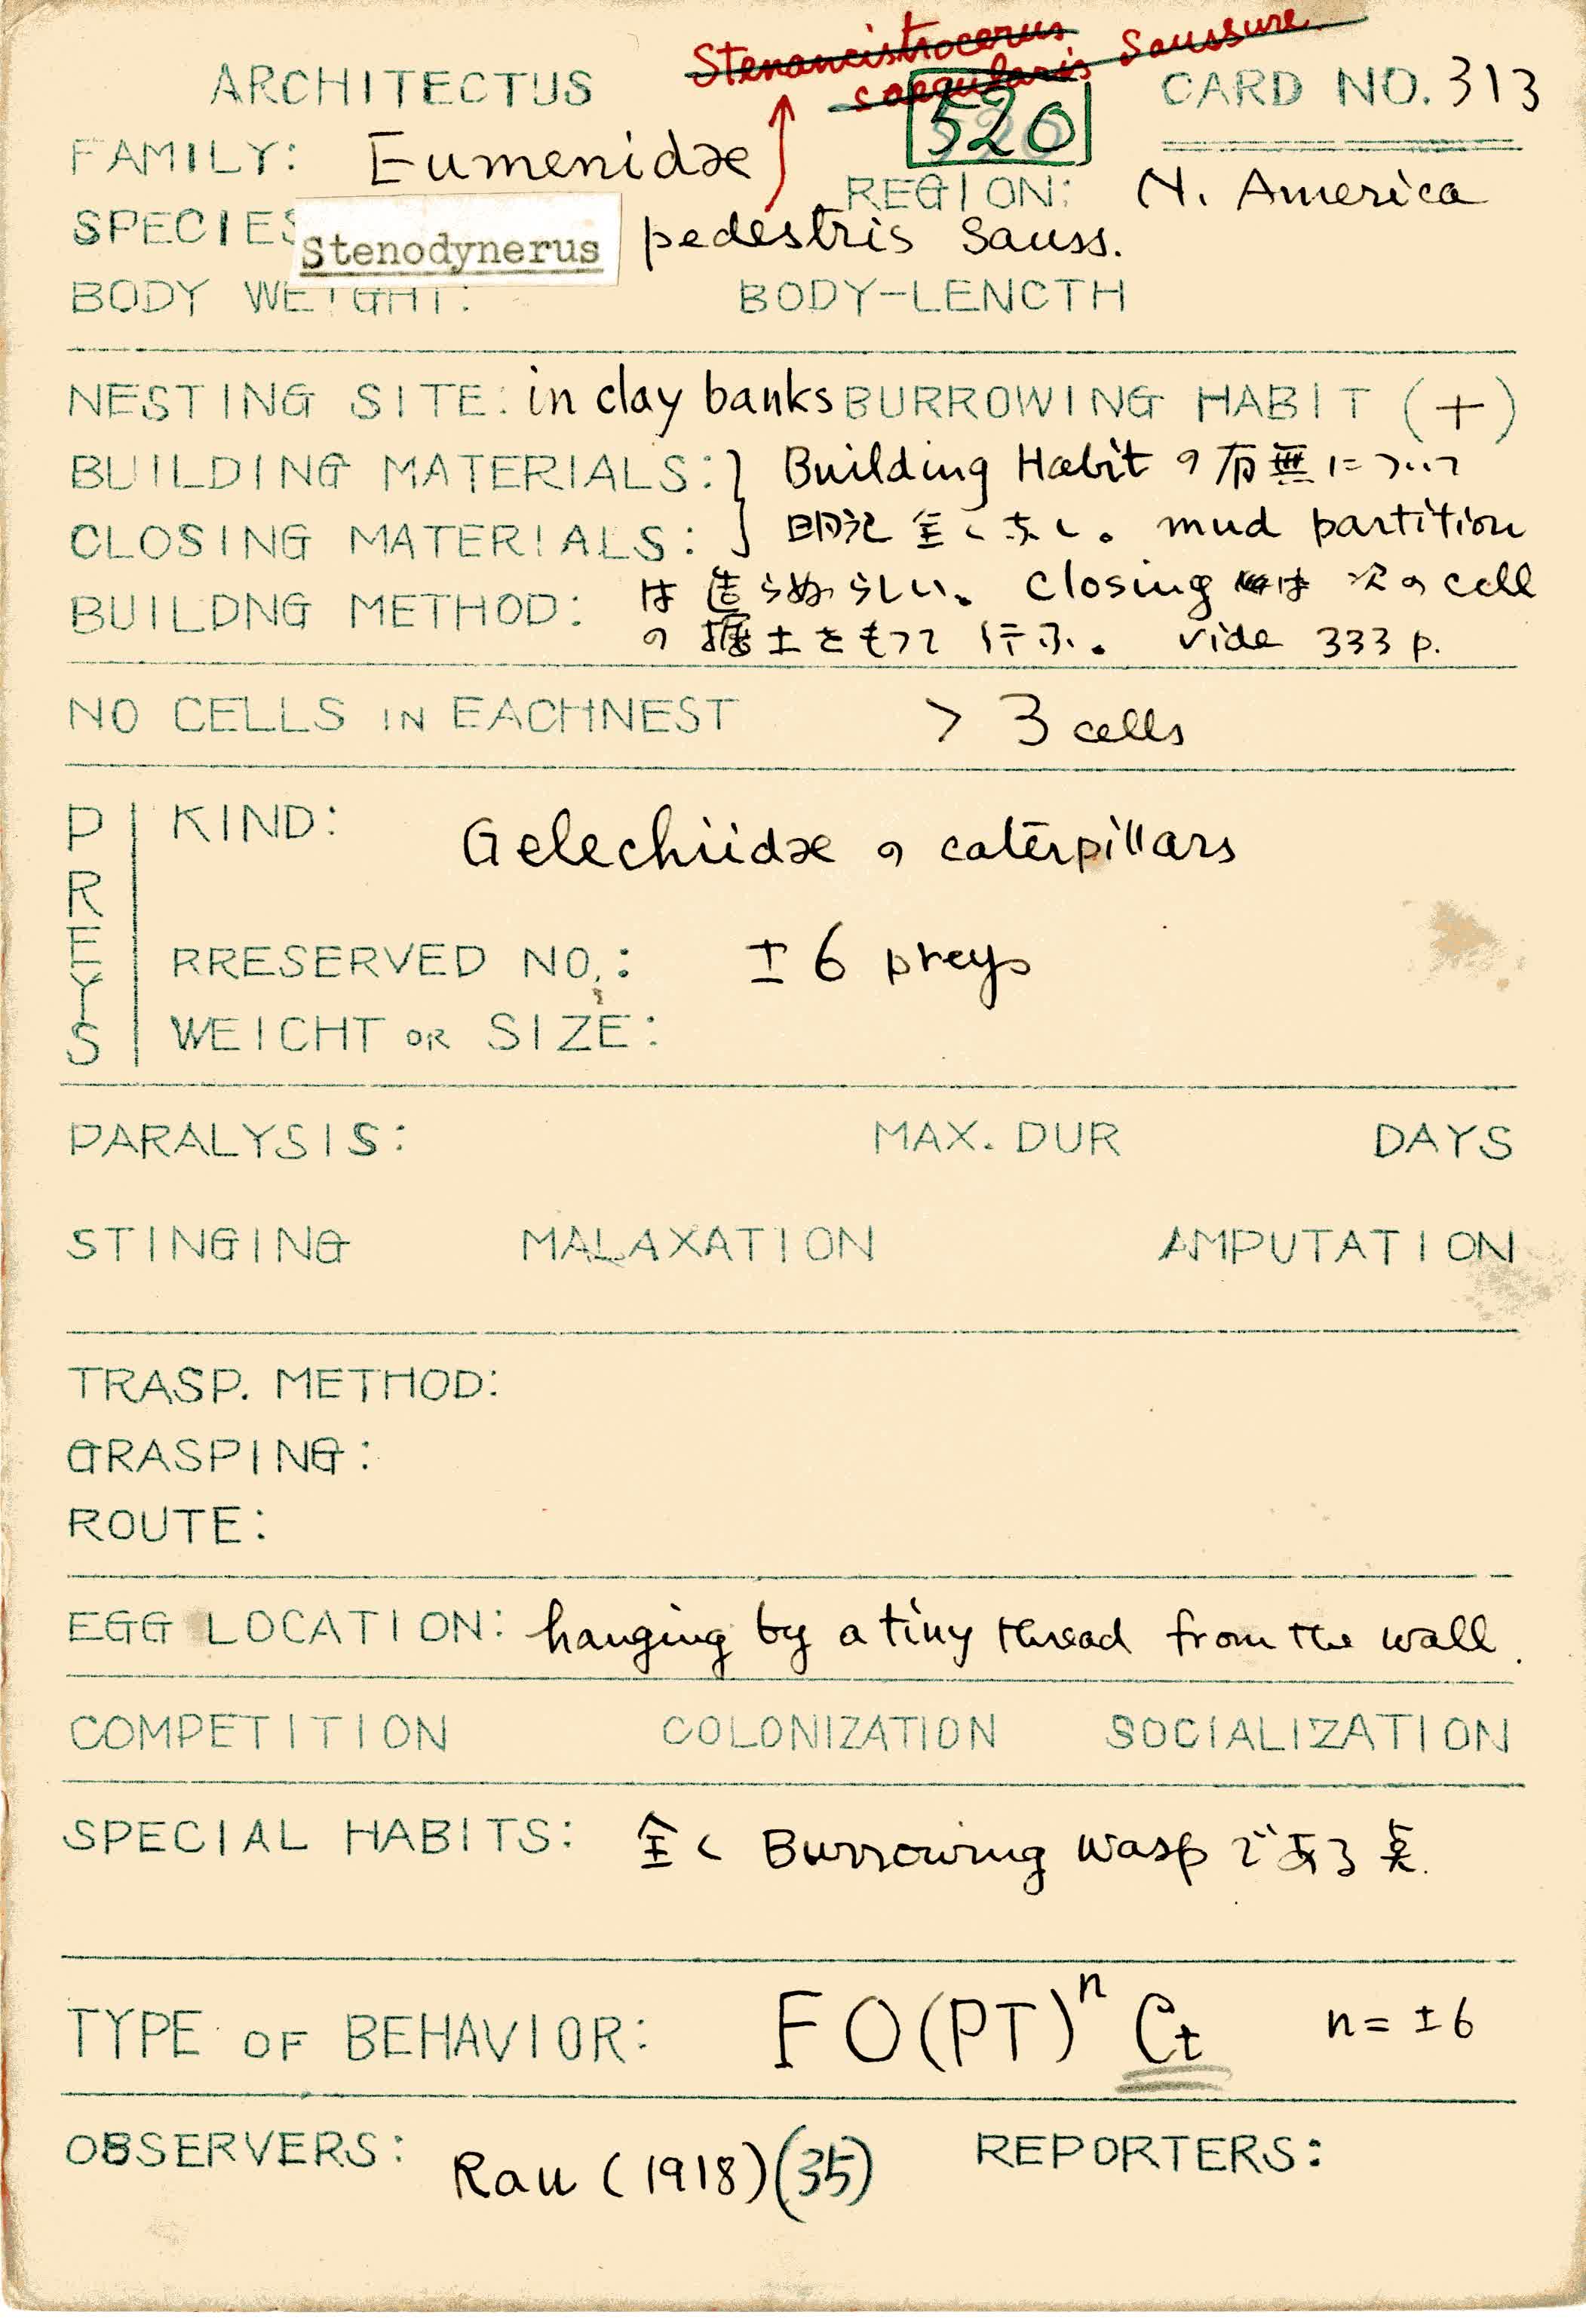 Stenancistrocerus
coangularis Saussure
ARCHITECTUS 520 CARD NO. 313
FAMILY: Eumenidæ REGION: N. America
SPECIES Stenodynerus pedestris Sauss.
BODY WEIGHT: BODY-LENCTH
NESTING SITE: in clay banks BURROWING HABIT (+)
BUILDING MATERIALS: } Building Habit の有無について
CLOSING MATERIALS: } 明記全くなし。 mud partition
は造らぬらしい。 Closing は 次の cell
BUILDNG METHOD:
の掘土をもって行ふ。 vide 333 p.
NO CELLS IN EACHNEST > 3 cells
PREYS
KIND: Gelechiidæ の caterpillars
RRESERVED NO.: ± 6 preys
WEICHT OR SIZE:
PARALYSIS: MAX. DUR DAYS
STINGING MALAXATION AMPUTATION
TRASP. METHOD:
GRASPING:
ROUTE:
EGG LOCATION: hanging by a tiny thread from the wall.
COMPETITION COLONIZATION SOCIALIZATION
SPECIAL HABITS: 全く Burrowing wasp である点.
TYPE OF BEHAVIOR: FO(PT)ⁿ Ct n= ±6
OBSERVERS: Rau (1918) (35) REPORTERS: